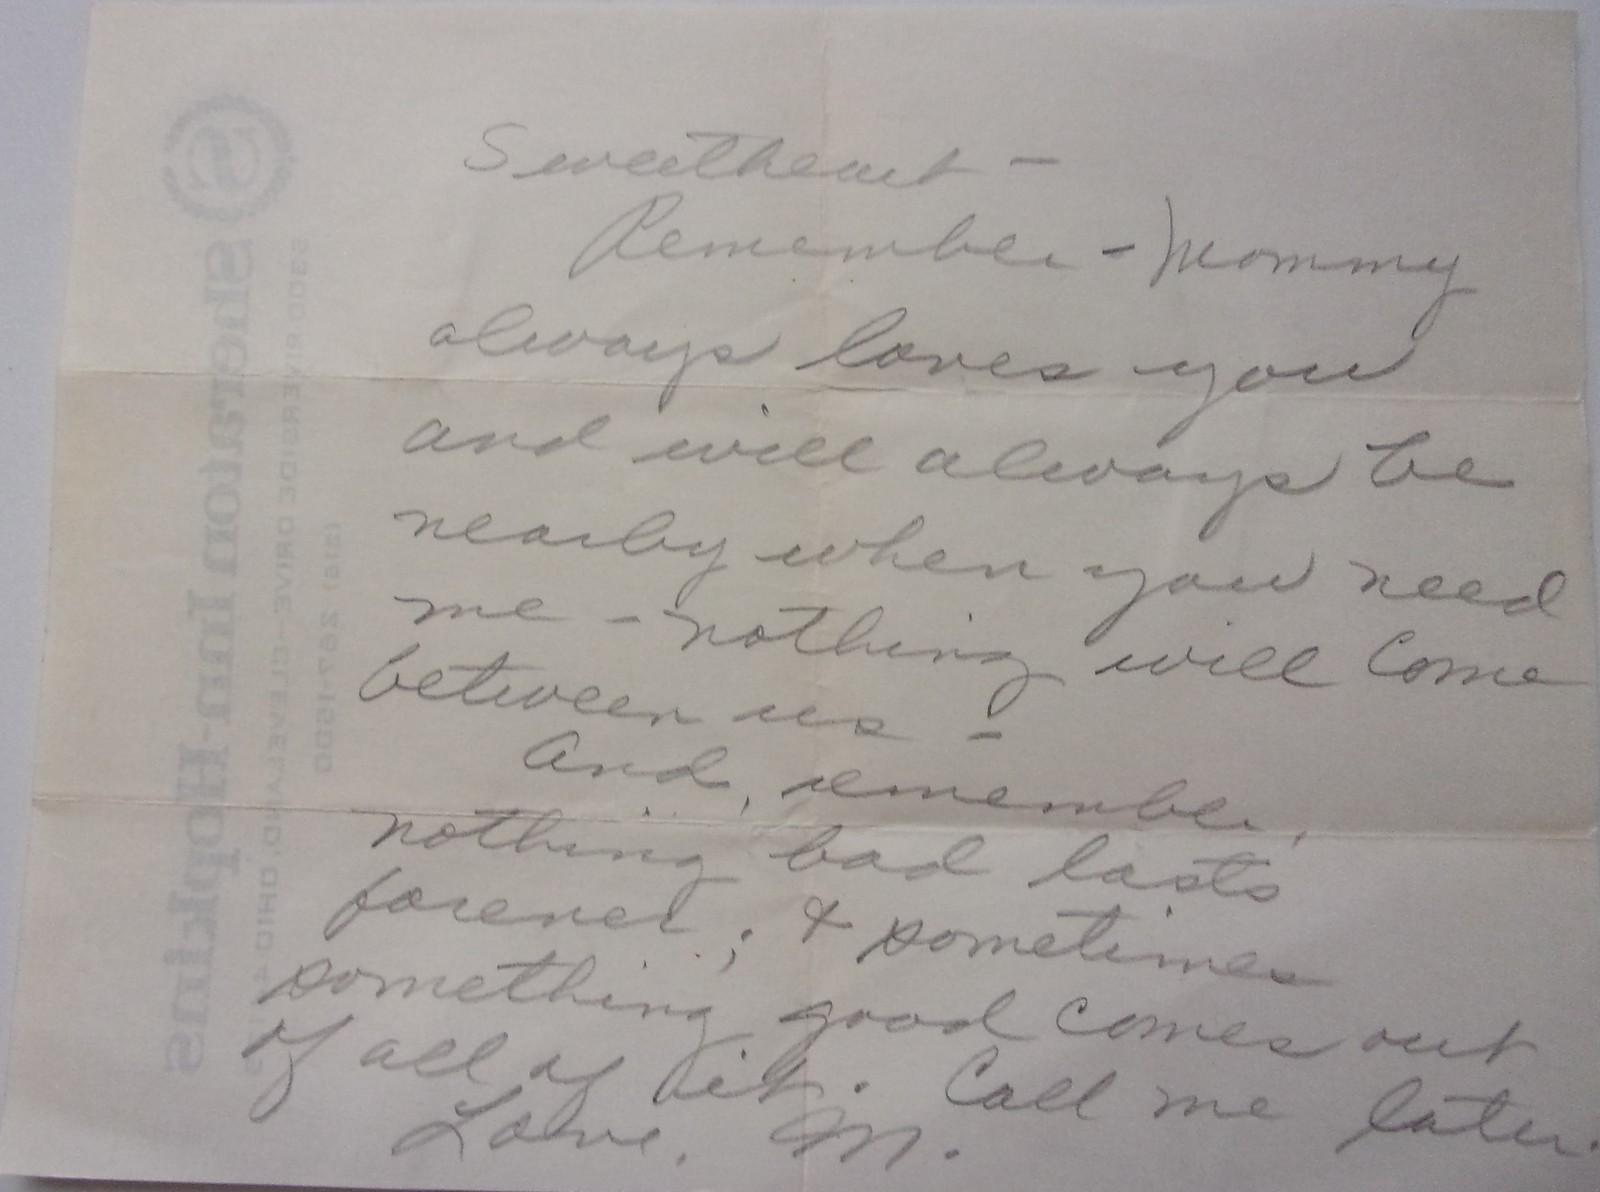 Sweetheart -
Remember - Mommy
always loves you
and will always be
nearby when you need
me - nothing will come
between us -
And, remember,
nothing bad lasts
forever; & sometimes
something good comes out
of all of it. Call me later.
Love, M.
Sheraton Inn-Hopkins
5300 RIVERSIDE DRIVE-CLEVELAND, OHIO
(216) 267-1500